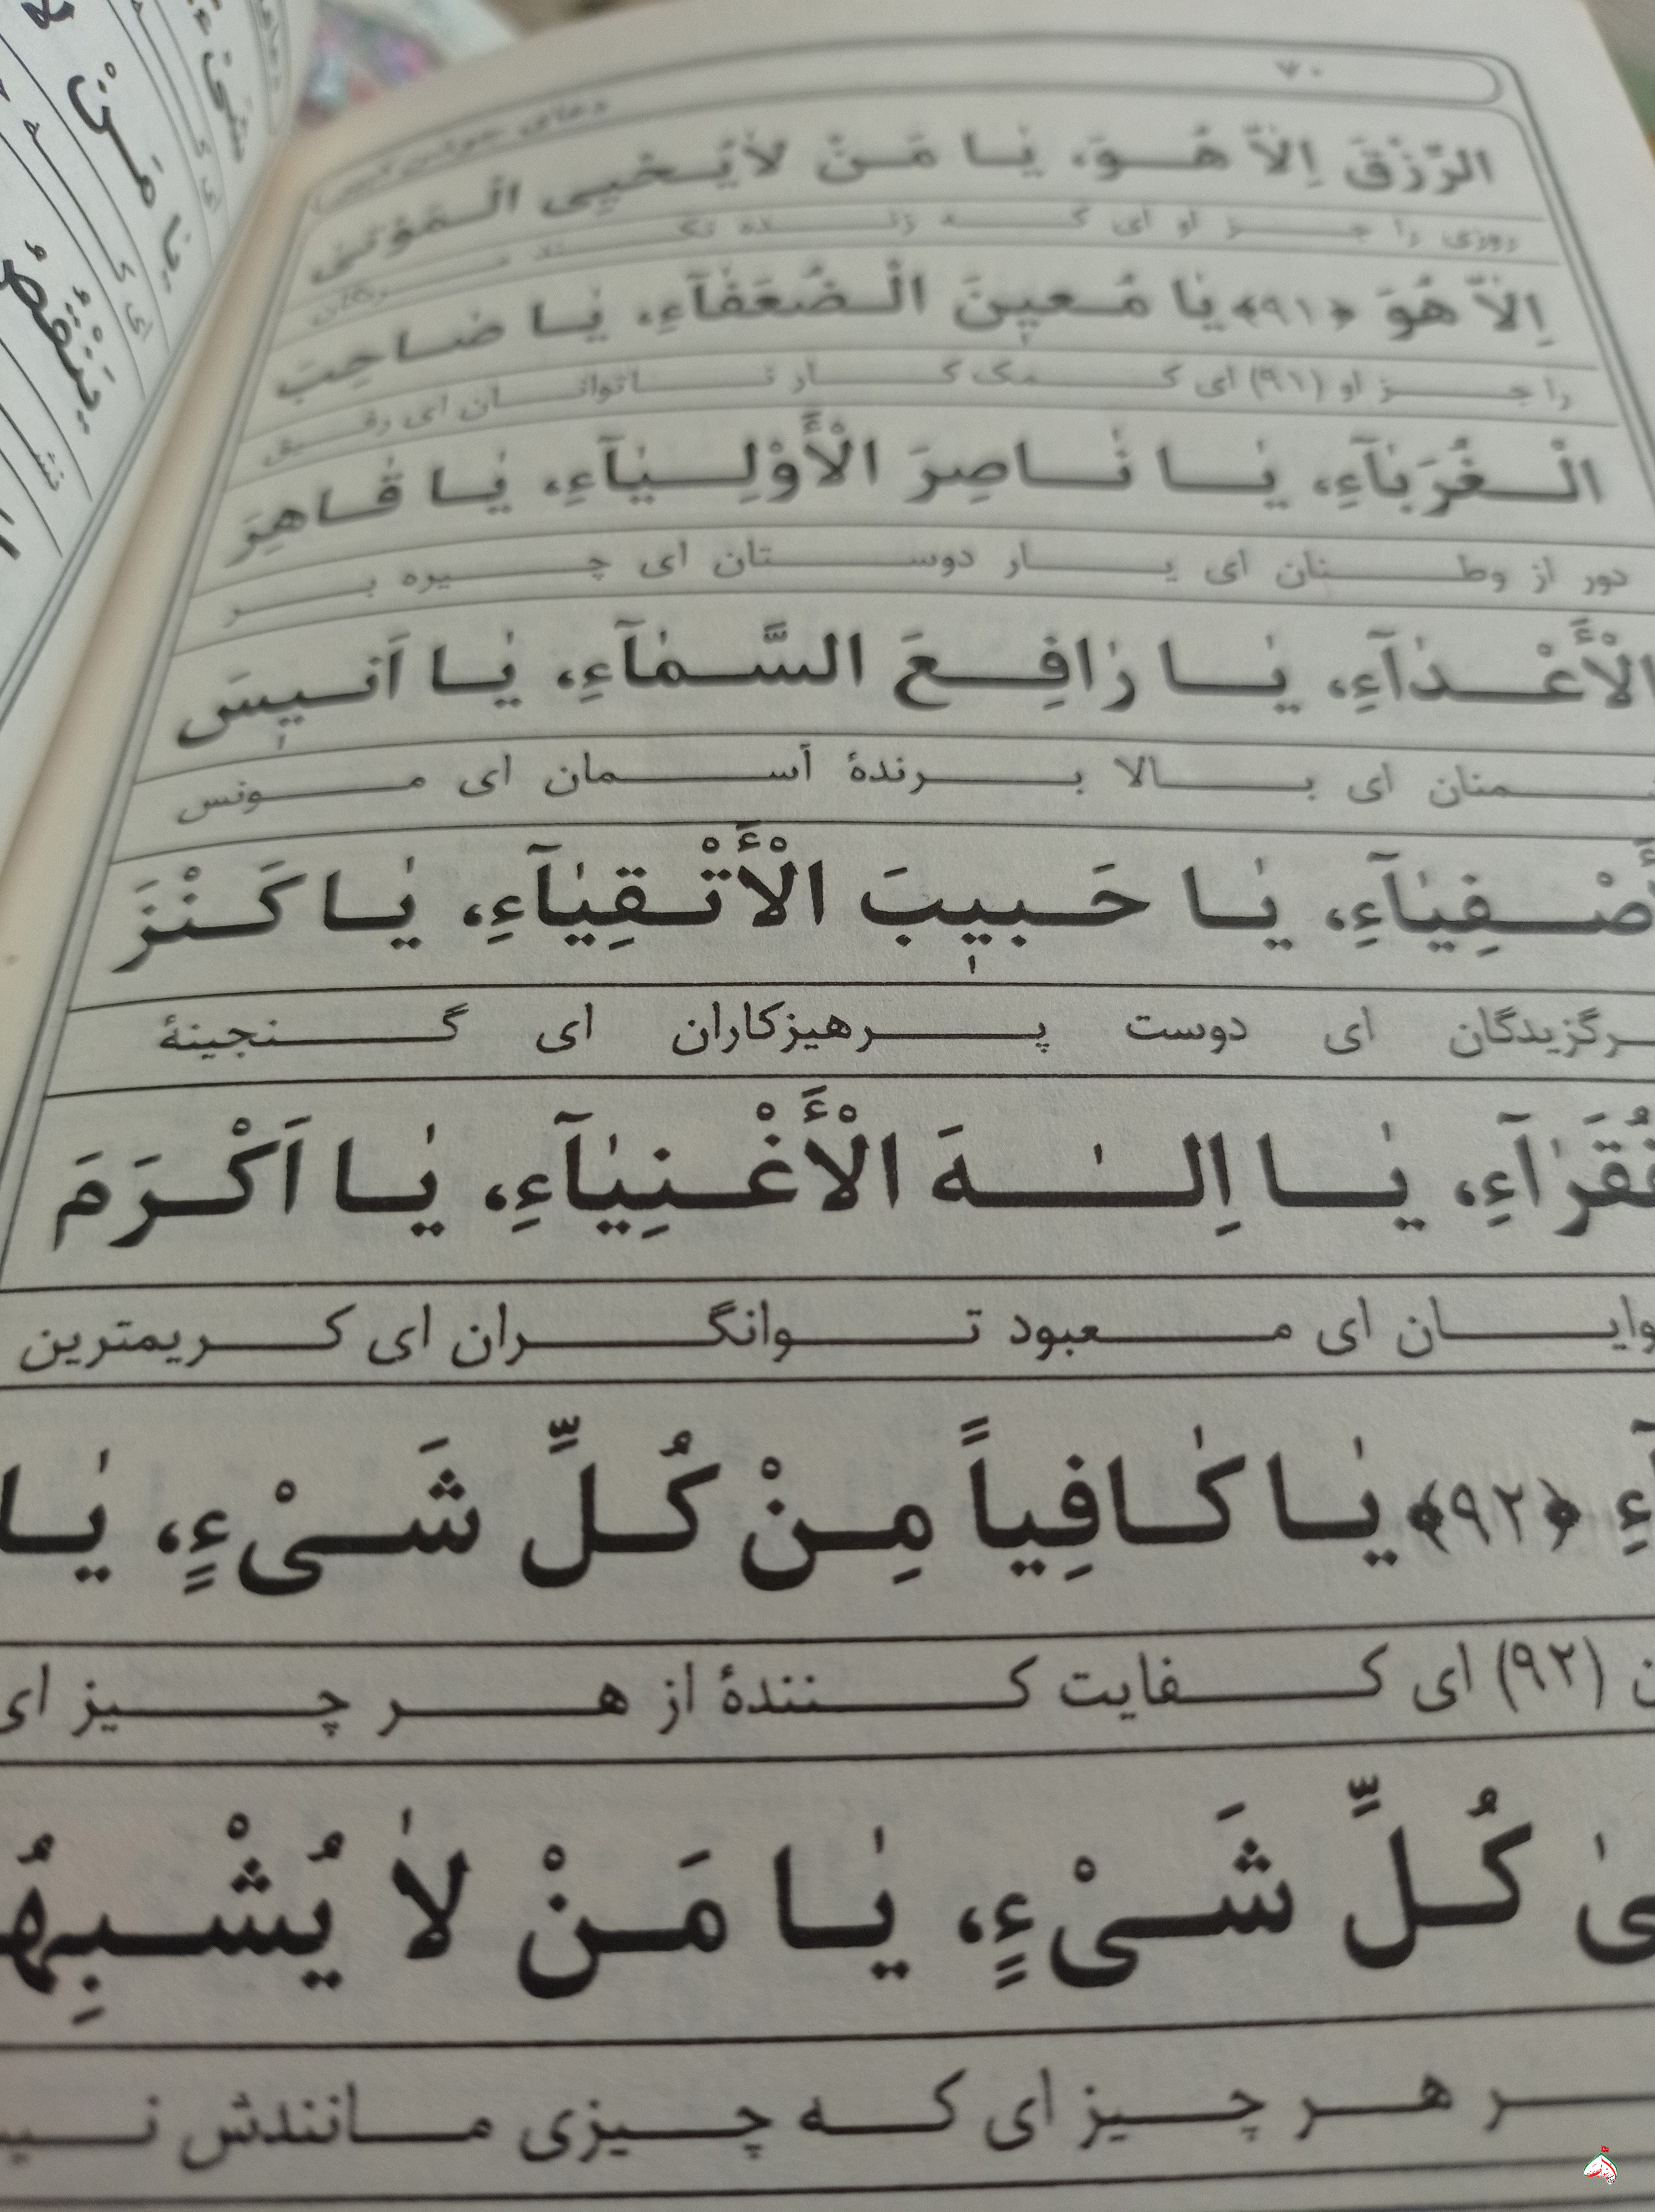 ۷۰
دعای جوشن کبیر
الرِّزْقَ اِلاّٰ هُـوَ، یٰـا مَـنْ لاٰیُـحْیِی الْـمَوْتىٰ
روزی را جـز او ای کـه زنـده نکـند مـردگان
اِلاّٰ هُوَ ﴿۹۱﴾ یٰا مُـعٖینَ الْـضُعَفٰآءِ، یٰـا صٰـاحِبَ
را جـز او (۹۱) ای کـمک کـار نـاتوانـان ای رفـیق
الْـغُرَبٰآءِ، یٰـا نٰـاصِرَ الْأَوْلِـیٰآءِ، یٰـا قٰـاهِرَ
دور از وطـنان ای یـار دوسـتان ای چـیره بـر
الْأَعْـدٰآءِ، یٰـا رٰافِـعَ السَّـمٰآءِ، یٰـا اَنـیٖسَ
ـمنان ای بـالا بـرندهٔ آسـمان ای مـونس
أَصْـفِیٰآءِ، یٰـا حَـبیٖبَ الْأَتْـقِیٰآءِ، یٰـا کَـنْزَ
ـرگزیدگان ای دوست پـرهیزکاران ای گـنجینهٔ
فُقَرٰآءِ، یٰـا اِلـٰهَ الْأَغْـنِیٰآءِ، یٰـا اَکْـرَمَ
وایـان ای مـعبود تـوانگـران ای کـریمترین
ءِ ﴿۹۲﴾ یٰـا کٰـافِیاً مِـنْ کُـلِّ شَـیْءٍ، یٰـا
ن (۹۲) ای کـفایت کـنندهٔ از هـر چـیز ای
ىٰ کُـلِّ شَـیْءٍ، یٰـا مَـنْ لاٰ یُشْـبِهُ
ـر هـر چـیز ای کـه چـیزی مـانندش نـیـ